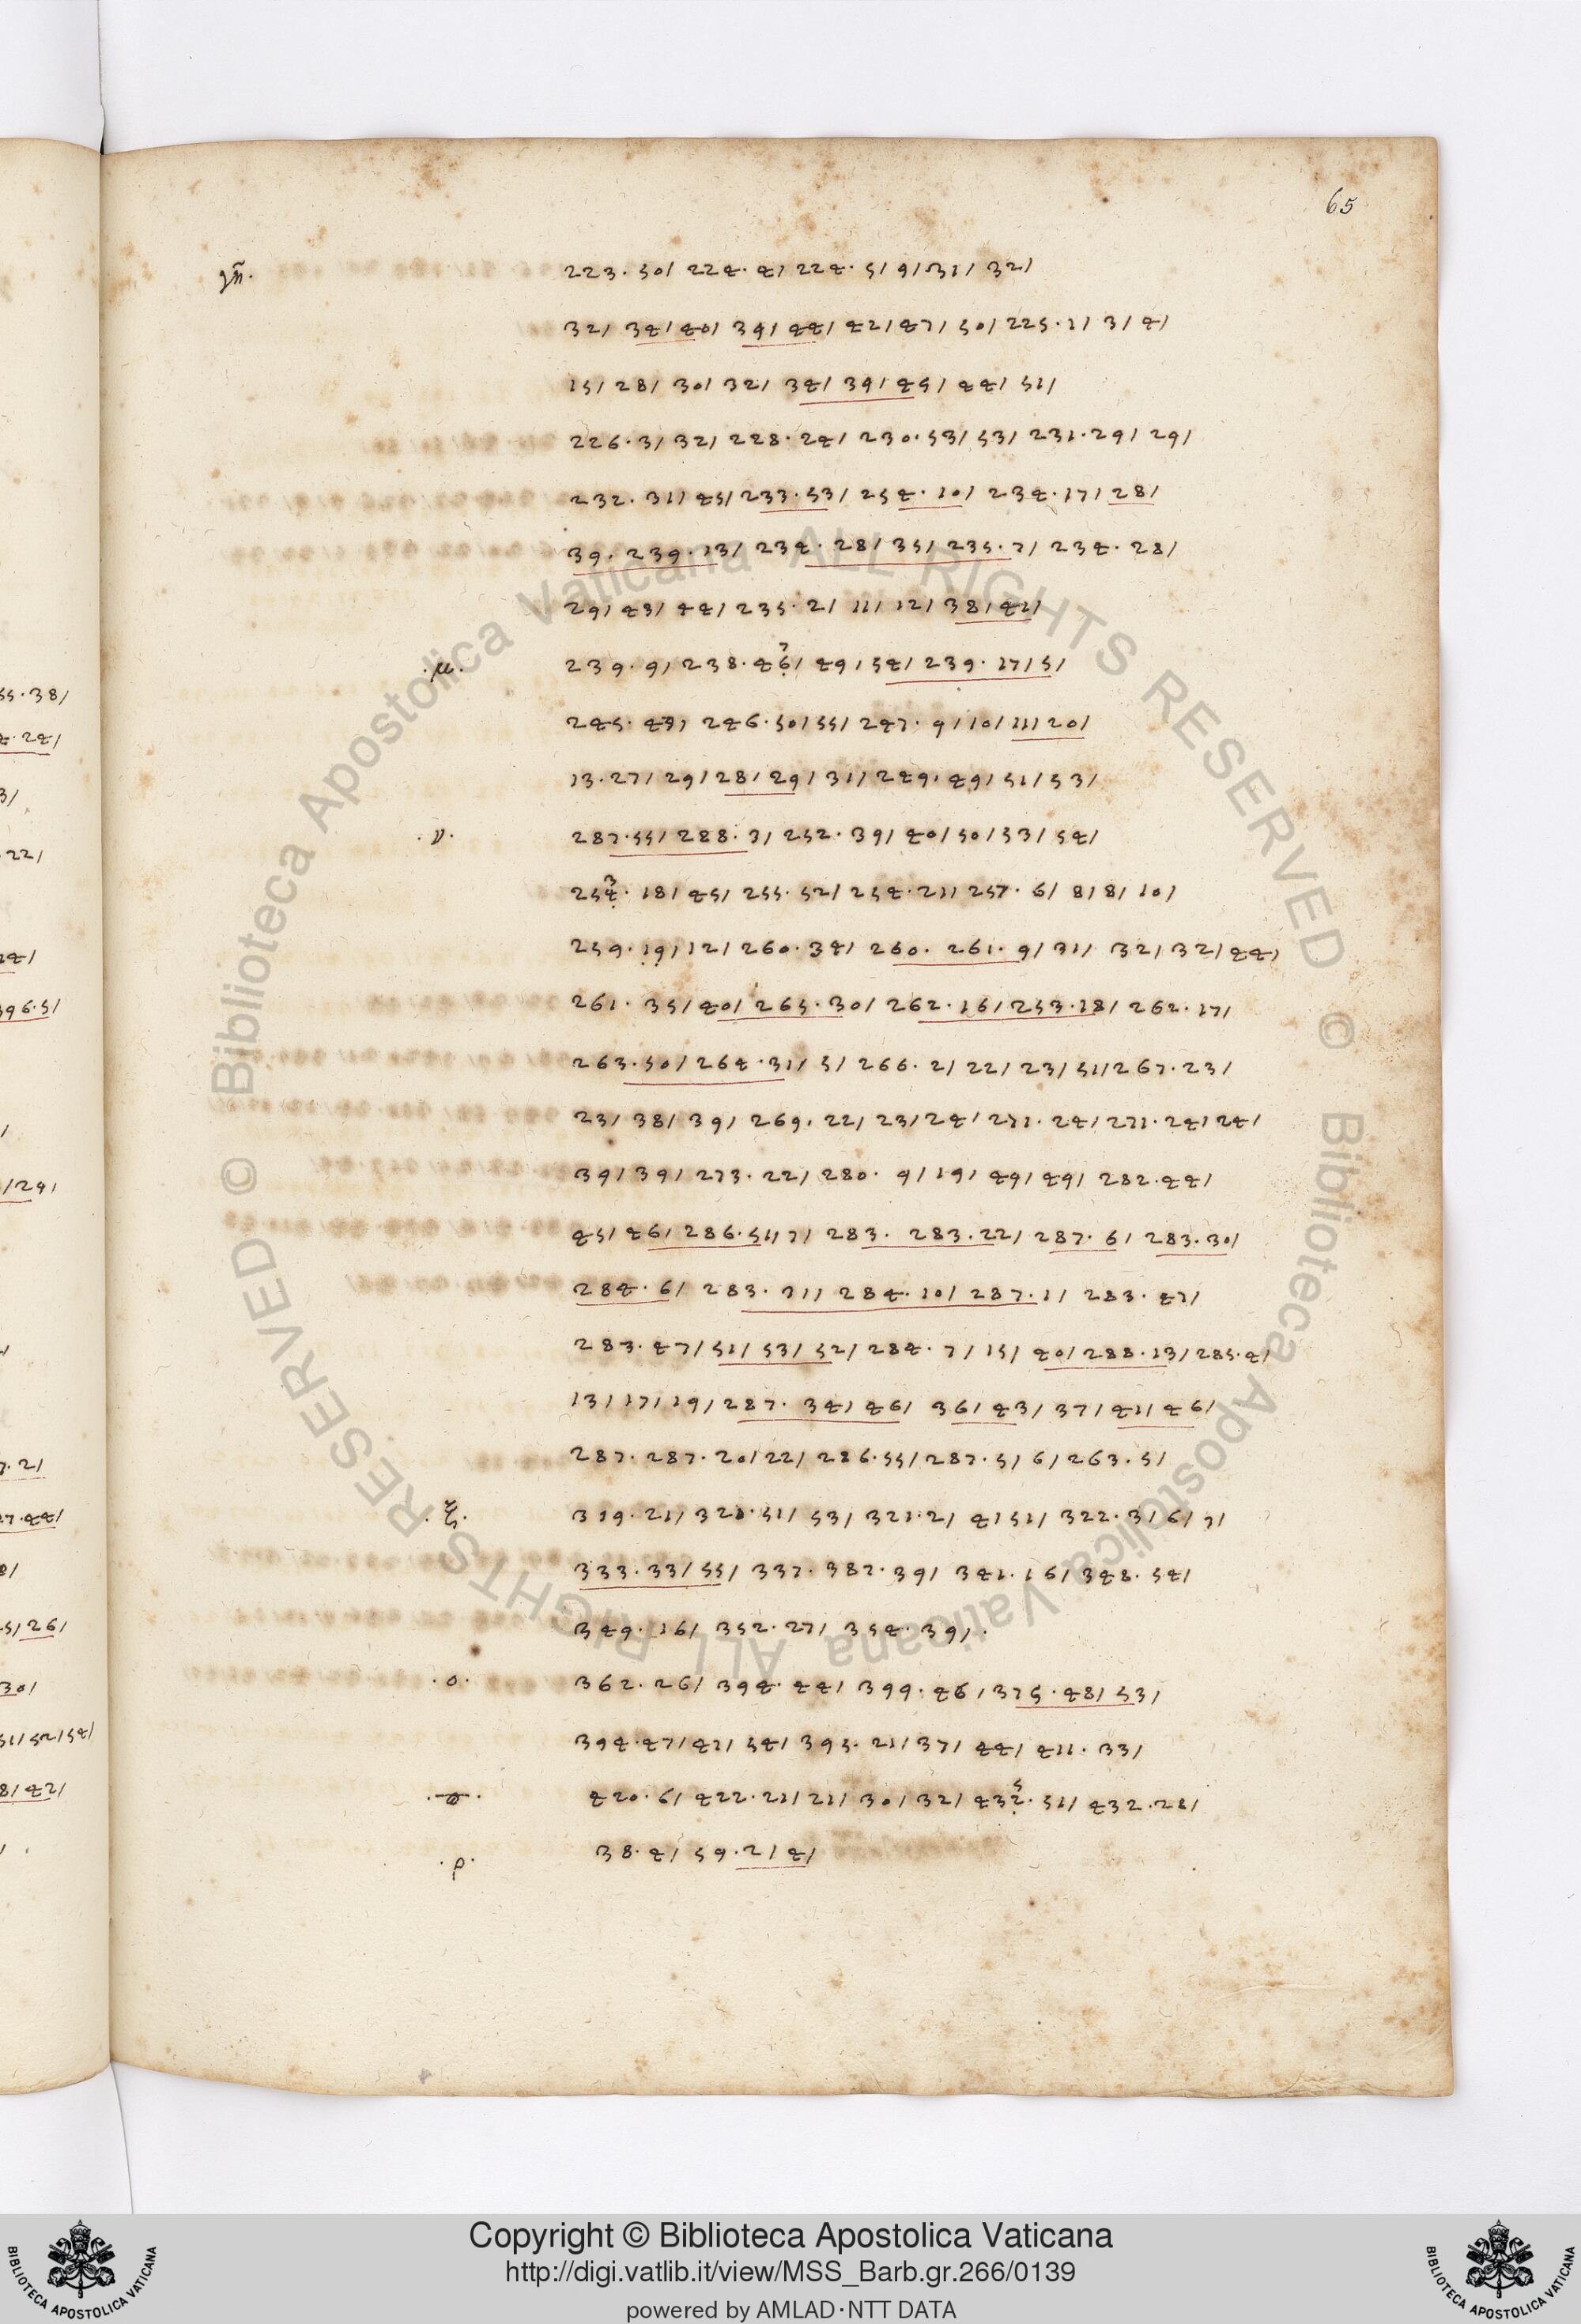 65
γη̃. 223. 50/ 224. 4/ 224. 5/ 9/ 31/ 32/
32/ 34/ 40/ 39/ 44/ 42/ 47/ 50/ 225. 1/ 3/ 4/
15/ 28/ 30/ 32/ 34/ 39/ 45/ 44/ 51/
226. 3/ 32/ 228. 24/ 230. 53/ 53/ 231. 29/ 29/
232. 31/ 45/ 233. 53/ 254. 10/ 234. 17/ 28/
39. 239. 13/ 234. 28/ 35/ 235. 7/ 234. 28/
29/ 43/ 44/ 235. 2/ 11/ 12/ 38/ 41/
.μ. 239. 9/ 238. 467/ 49/ 54/ 239. 17/ 5/
245. 246. 50/ 55/ 247. 9/ 10/ 11/ 20/
13. 27/ 29/ 28/ 29/ 31/ 249. 49/ 51/ 53/
.ν. 287. 55/ 288. 3/ 252. 39/ 40/ 50/ 53/ 54/
2543. 18/ 45/ 255. 52/ 254. 21/ 257. 6/ 8/ 8/ 10/
259. 19/ 12/ 260. 34/ 260. 261. 9/ 31/ 32/ 32/ 44/
261. 35/ 40/ 265. 30/ 262. 16/ 253. 18/ 262. 17/
263. 50/ 264. 31/ 5/ 266. 2/ 22/ 23/ 51/ 267. 23/
23/ 38/ 39/ 269. 22/ 23/ 24/ 271. 24/ 271. 24/ 24/
39/ 39/ 273. 22/ 280. 9/ 19/ 49/ 49/ 282. 44/
45/ 46/ 286. 51/ 7/ 283. 283. 22/ 287. 6/ 283. 30/
284. 6/ 283. 31/ 284. 10/ 287. 1/ 283. 47/
283. 47/ 51/ 53/ 52/ 284. 7/ 15/ 40/ 288. 13/ 285. 4/
13/ 17/ 19/ 287. 34/ 46/ 36/ 43/ 37/ 41/ 46/
287. 287. 20/ 22/ 286. 55/ 287. 5/ 6/ 263. 5/
.ξ. 319. 21/ 320. 51/ 53/ 321. 2/ 4/ 51/ 322. 3/ 6/ 7/
333. 33/ 55/ 337. 387. 39/ 341. 16/ 348. 54/
349. 16/ 352. 27/ 354. 39/.
.ο. 362. 26/ 394. 44/ 399. 46/ 375. 48/ 53/
394. 47/ 41/ 54/ 395. 21/ 37/ 44/ 411. 33/
420. 6/ 422. 21/ 21/ 30/ 32/ 4325. 51/ 432. 28/
.ρ. 38. 4/ 59. 2/ 4/
Copyright © Biblioteca Apostolica Vaticana
http://digi.vatlib.it/view/MSS_Barb.gr.266/0139
powered by AMLAD·NTT DATA